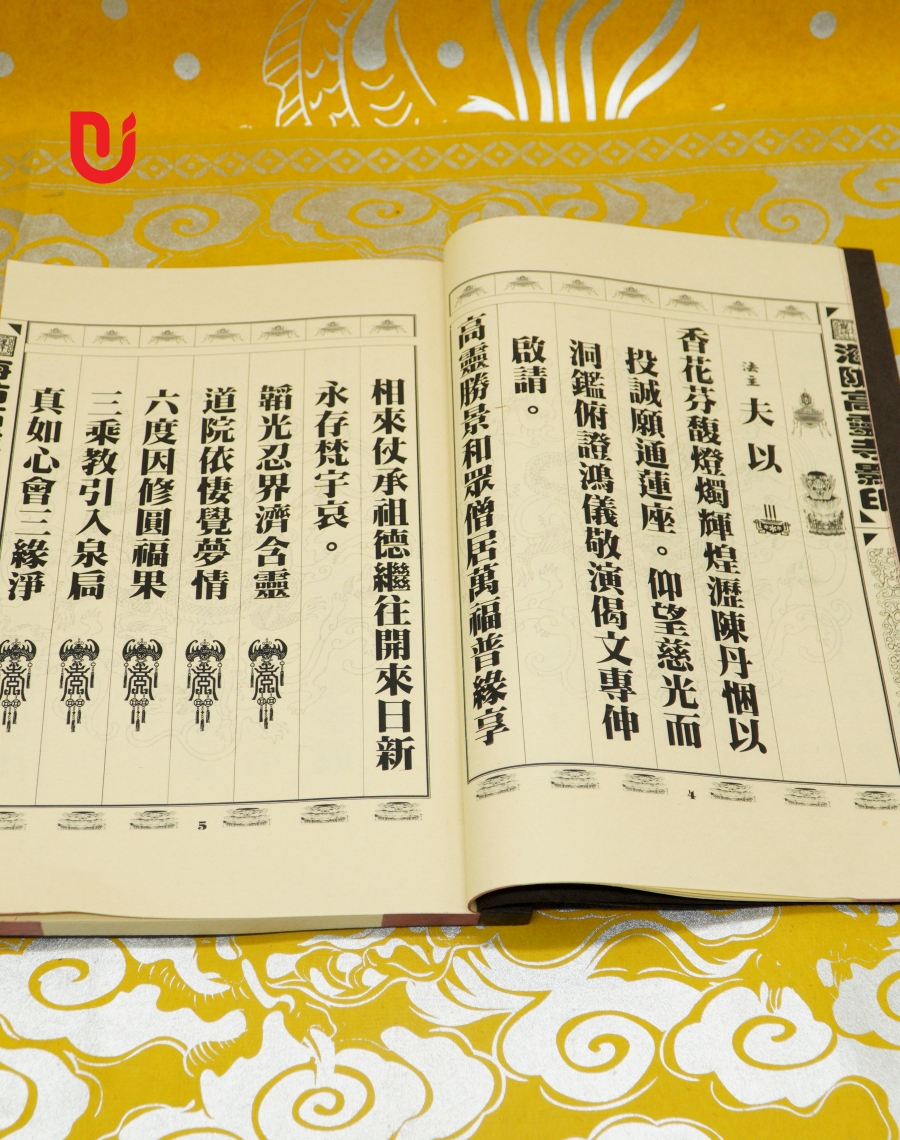 高靈寺影印
法主 夫以
香花芬馥燈燭輝煌瀝陳丹悃以
投誠願通蓮座。仰望慈光而
洞鑑俯證鴻儀敬演偈文專伸
啟請。
高靈勝景和眾僧居萬福普緣享
4
相來仗承祖德繼往開來日新
永存梵宇哀。
韜光忍界濟含靈
道院依悽覺夢情
六度因修圓福果
三乘教引入泉局
真如心會三緣淨
5